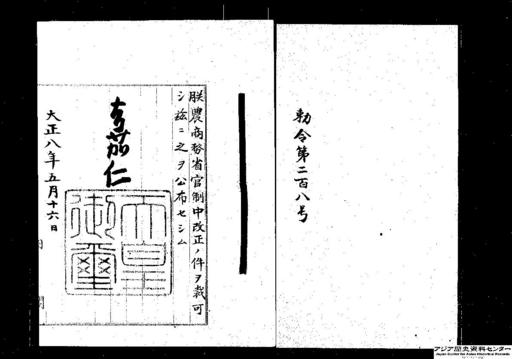 勅令第二百八号
朕農商務省官制中改正ノ件ヲ裁可
シ茲ニ之ヲ公布セシム
嘉仁
天皇
御璽
大正八年五月十六日
アジア歴史資料センター
Japan Center for Asian Historical Records